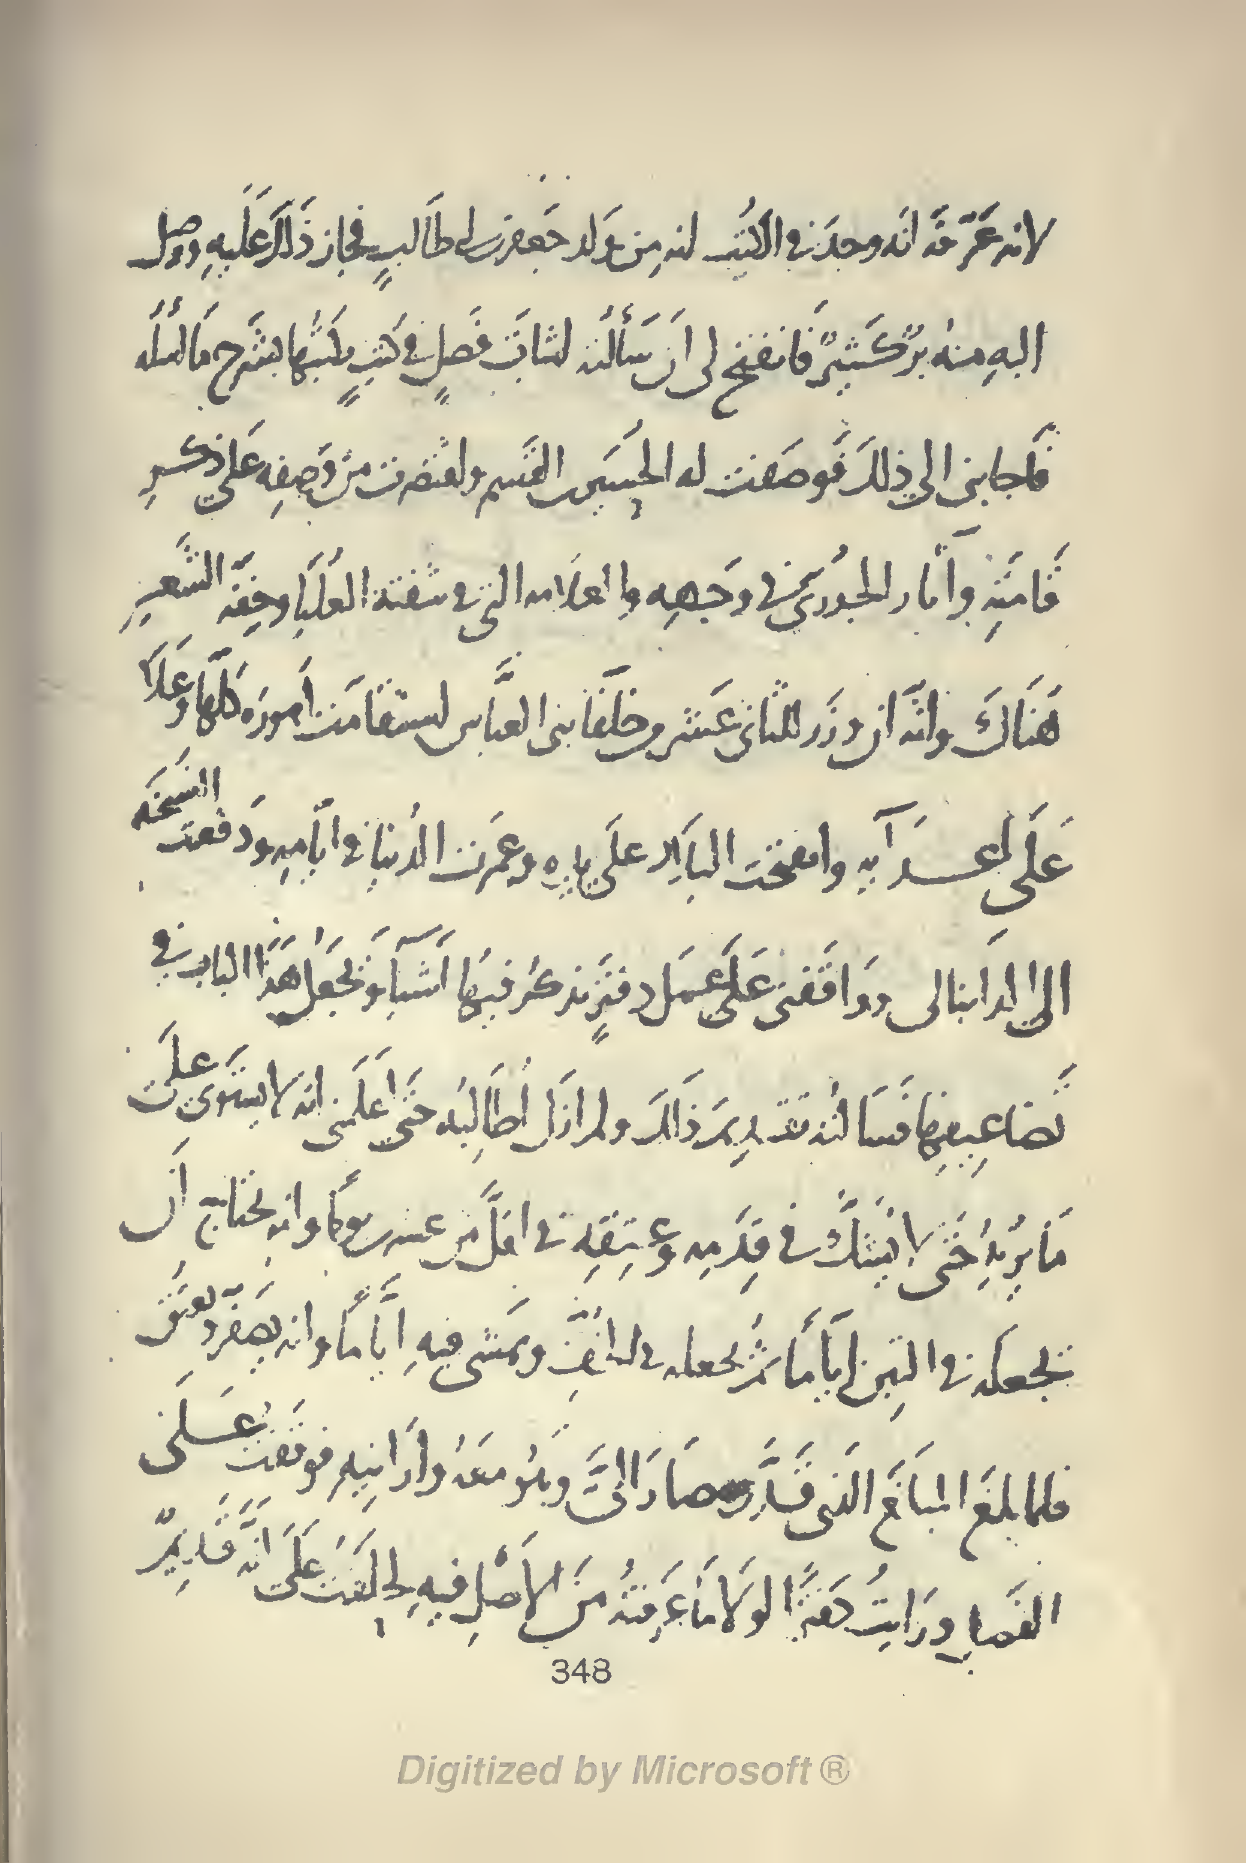 لانه عَرّفَه انَه وجدَ في الكتُب انه مِن وَلد جَعفر بن ابي طَالبٍ فجاز ذَلكَ عَلَيهِ ووصل
اليهِ منهُ برّ كَثيرٌ فانفتح لي اَن سَأَلته اثباتَ فَصلٍ في كتبٍ يكتبُها بشَرح ما اسأله
فاجابني الي ذلكَ فَوصَفت له الحُسَين بن القَسم واقتصَرت مِن وَصفِه عَلي ذكر
قامَتِهِ وآثار الجُدريّ في وَجههِ والعلامه التي في شفته العُليَا وخِفّة الشّعر
هُنَاكَ وانّه ان وزَر للثاني عَشر من خلَفاء بني العبَّاس استقامَت اُموره كلّها وعَلا
عَلَي اَعدَآيهِ وانفتحت البلاد علَي يدِه وعمرَت الدُنيا في ايّامِهِ ودَفعت النسخَه
الي الدانيالي وواقَفني عَلَي عمَل دفترٍ يذكُر فيهَا اَشيَآ ونجعَل هَذَا البابَ في
تضاعِيفها فسَالتُه تقديم ذَلكَ ولم ازَل اُطَالِبُه حتّي اَعلَمني انه لا يستوي علي
مَا يُريدُ حَتي لا يُشَكَّ في قِدَمِه وعِتقِه في اقلّ من عشرين يومًا وانه يحتاج اَن
يجعله في التِبن ايَّامًا ثمّ يجعله في الخُفِّ ويمشي فيهِ ايّامًا وانه يصفرّ ويعتق
فلما بلغ المبلغَ الذي قدَّر صَارَ اليَّ وهُو معَهُ وارَانِيهِ فوقفتُ عَلي
الفصل ورَايتُ دفترًا لولا مَا عَرفتُه مِنَ الاَصلِ فيهِ لحلَفتُ عَلَي انّه قَديمٌ
348
Digitized by Microsoft ®